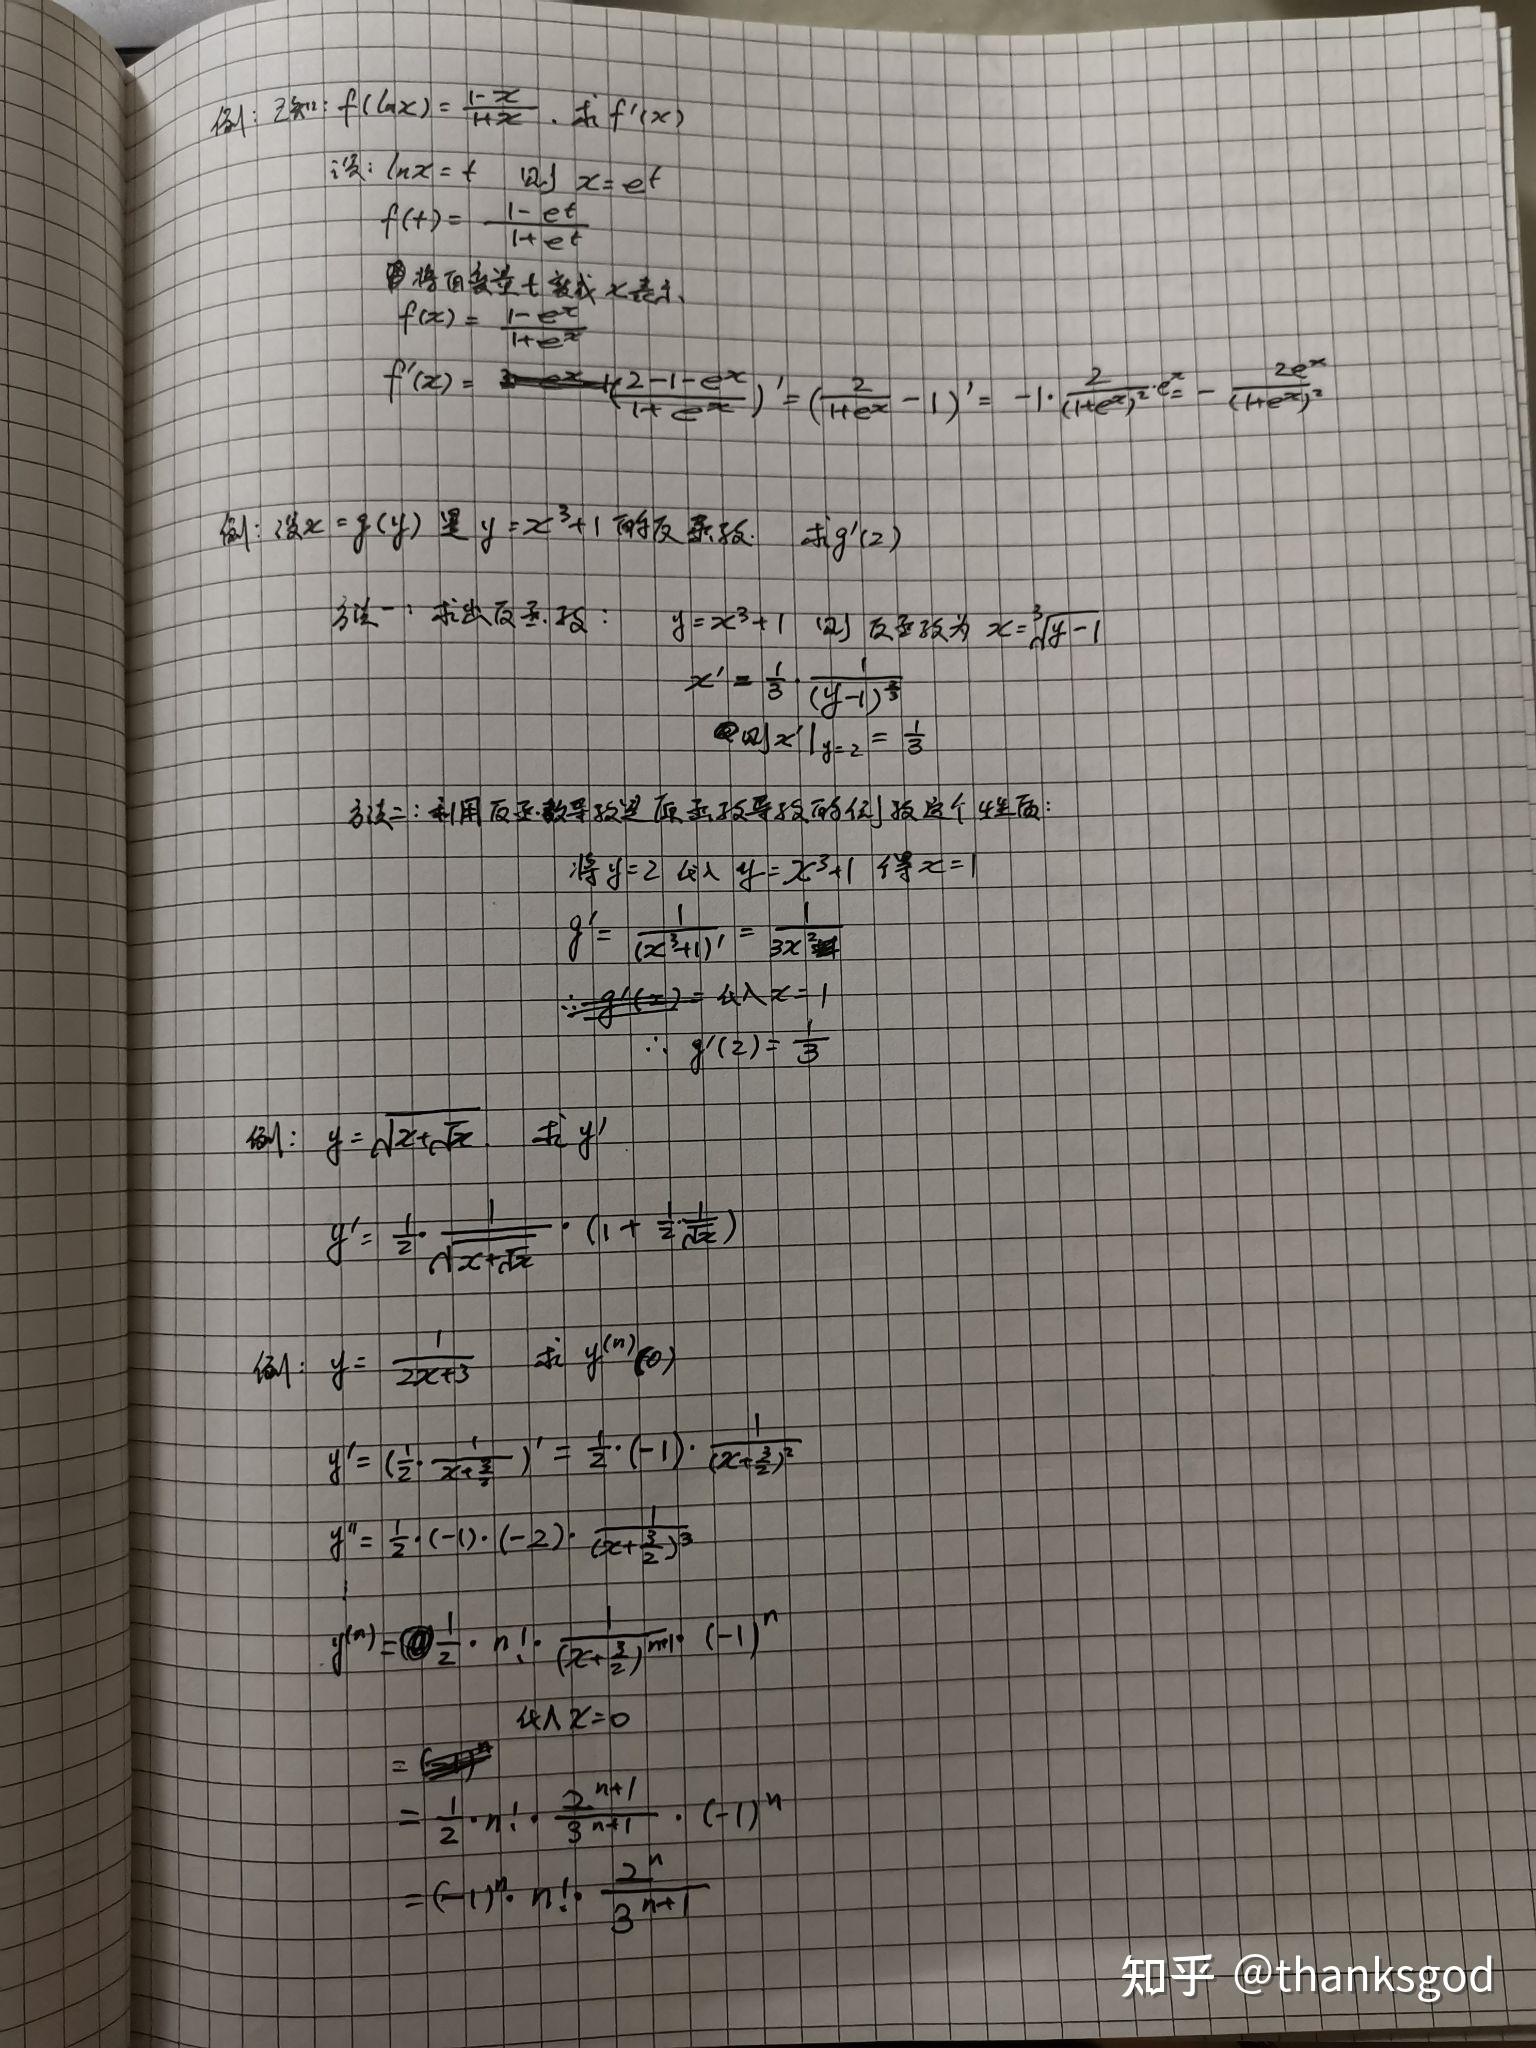 例: 已知: f(lnx) = \frac{1-x}{1+x} . 求 f'(x)
设: lnx = t 则 x = e^t
f(t) = \frac{1-e^t}{1+e^t}
将自变量 t 变成 x 表示
f(x) = \frac{1-e^x}{1+e^x}
f'(x) = (\frac{2-1-e^x}{1+e^x})' = (\frac{2}{1+e^x} - 1)' = -1 · \frac{2}{(1+e^x)^2} · e^x = - \frac{2e^x}{(1+e^x)^2}
例: 设 x = g(y) 是 y = x^3+1 的反函数. 求 g'(2)
方法一: 求出反函数: y = x^3+1 则 反函数为 x = \sqrt[3]{y-1}
x' = \frac{1}{3} · \frac{1}{(y-1)^{\frac{2}{3}}}
则 x'|_{y=2} = \frac{1}{3}
方法二: 利用反函数导数是原函数导数的倒数这个性质:
将 y=2 代入 y = x^3+1 得 x=1
g' = \frac{1}{(x^3+1)'} = \frac{1}{3x^2}
代入 x = 1
∴ g'(2) = \frac{1}{3}
例: y = \sqrt{x+\sqrt{x}}. 求 y'
y' = \frac{1}{2} · \frac{1}{\sqrt{x+\sqrt{x}}} · (1 + \frac{1}{2} · \frac{1}{\sqrt{x}})
例: y = \frac{1}{2x+3} 求 y^{(n)}(0)
y' = (\frac{1}{2} · \frac{1}{x+\frac{3}{2}})' = \frac{1}{2} · (-1) · \frac{1}{(x+\frac{3}{2})^2}
y'' = \frac{1}{2} · (-1) · (-2) · \frac{1}{(x+\frac{3}{2})^3}
⋮
y^{(n)} = \frac{1}{2} · n! · \frac{1}{(x+\frac{3}{2})^{n+1}} · (-1)^n
代入 x = 0
=
= \frac{1}{2} · n! · \frac{2^{n+1}}{3^{n+1}} · (-1)^n
= (-1)^n · n! · \frac{2^n}{3^{n+1}}
知乎 @thanksgod